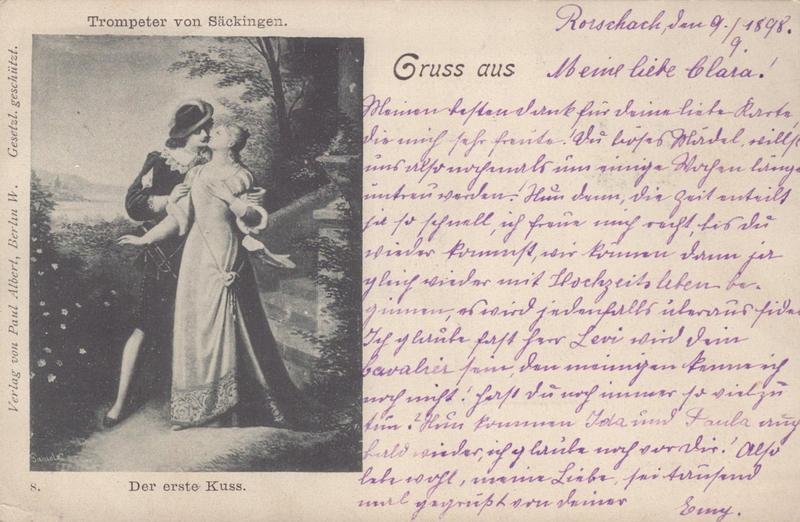 Trompeter von Säckingen.
Verlag von Paul Albert, Berlin W. Gesetzl. geschützt.
Rorschach, den 9./9. 1898.
Gruss aus
Meine liebe Clara!
Meinen besten Dank für deine liebe Karte,
die mich sehr freute! Du böses Mädel, willst
uns also nochmals um einige Wochen länger
untreu werden. Nun denn, die Zeit enteilt
ja so schnell, ich freue mich recht, bis du
wieder kommst, wir können dann ja
gleich wieder mit Hochzeitsleben be-
ginnen, es wird jedenfalls überaus fidel
Ich glaube fast Herr Levi wird dein
Cavalier sein, den meinigen kenne ich
noch nicht! Hast du noch immer so viel zu
tun? Nun kommen Ida und Paula auch
bald wieder, ich glaube noch vor dir! Also
lebe wohl, meine Liebe, sei tausend
mal gegrüßt von deiner Emy.
8. Der erste Kuss.